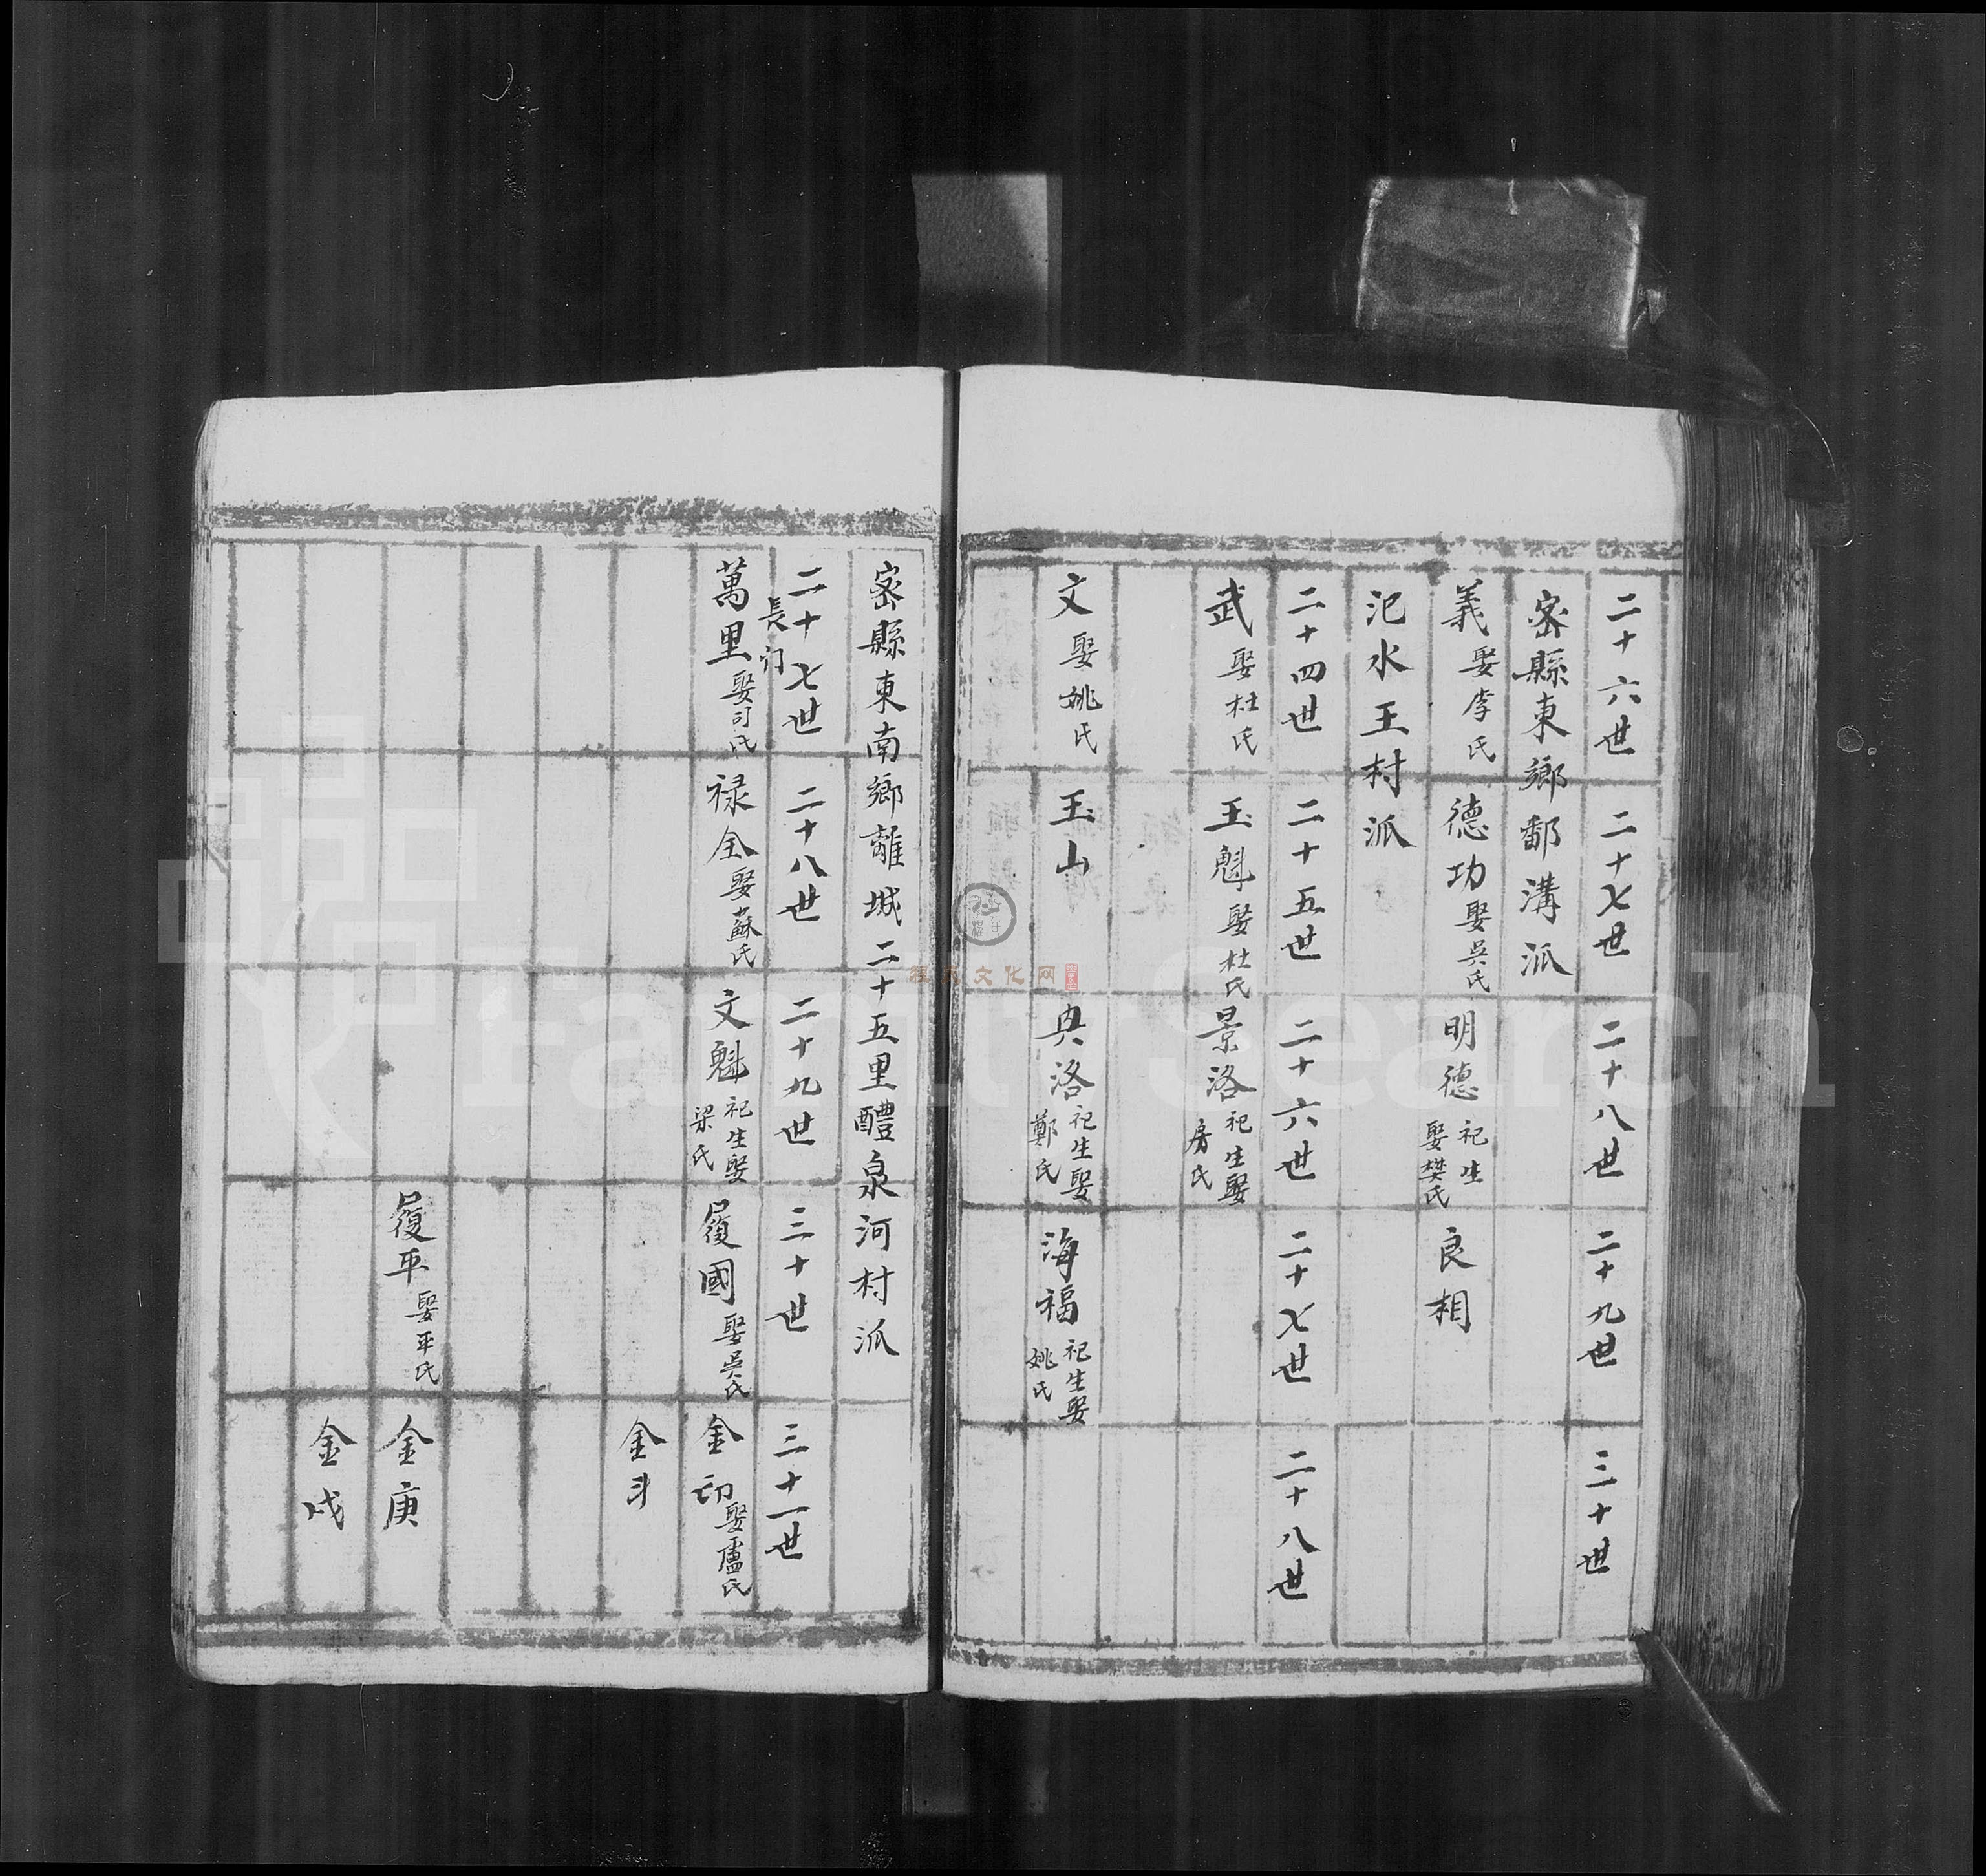 二十六世 二十七世 二十八世 二十九世 三十世
密縣東鄉鄱溝派
義 娶李氏 德功 娶吳氏 明德 祀生娶樊氏 良相
汜水王村派
二十四世 二十五世 二十六世 二十七世 二十八世
武 娶杜氏 玉魁 娶杜氏 景洛 祀生娶房氏
文 娶姚氏 玉山 典洛 祀生娶鄭氏 海福 祀生娶姚氏
密縣東南鄉離城二十五里醴泉河村派
二十七世 二十八世 二十九世 三十世 三十一世
長门
萬里 娶司氏 禄全 娶蘇氏 文魁 祀生娶梁氏 履國 娶吳氏 金印 娶盧氏
金斗
履平 娶平氏 金庚
金戍
程氏文化网
FamilySearch